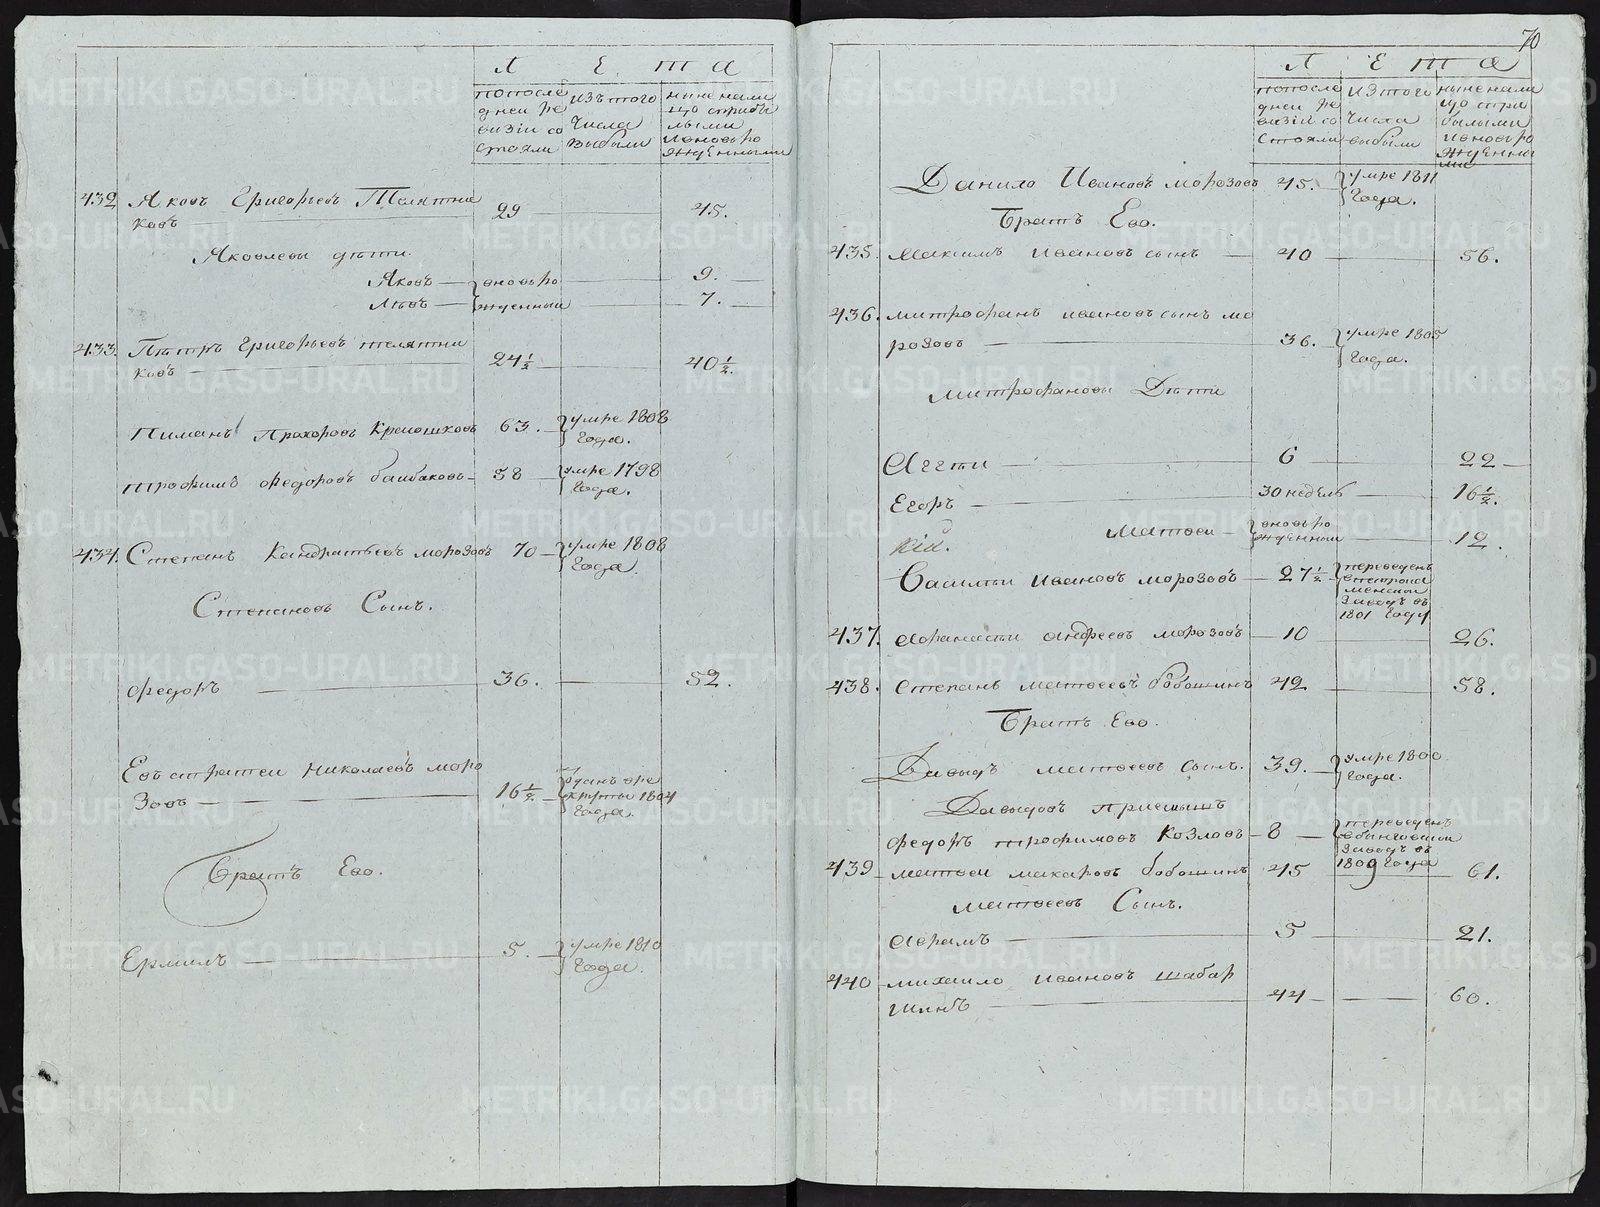 Л Е т а
попосле
дней ре
визіи со
стояли
изъ того
числа
выбыли
ныне нали
цо с прибы
лыми
и вновь ро
жденными
432 Яковъ Григорьевъ Телятни
ковъ 29 45.
Яковлевы дѣти.
Яковъ вновь ро 9.
Львъ жденныи 7.
433. Петръ Григорьевъ телятни
ковъ 24½ 40½.
Пиманъ Прохоровъ 63. умре 1808
года.
трофимъ федоровъ баибаковъ 58 умре 1798
года.
434. Степанъ Кандратьевъ морозовъ 70 умре 1808
года.
Степановъ Сынъ.
федоръ 36. 52.
Евстратеи Николаевъ моро
зовъ 16½ зданъ вре
круты 1804
года.
Братъ Ево.
Ермилъ 5. умре 1810
года.
70
Л Е т а
попосле
дней ре
визіи со
стояли
изъ того
числа
выбыли
ныне нали
цо с при
былыми
и вновь ро
жденны
ми
Данило Ивановъ морозовъ 45. умре 1811
года.
Братъ Ево.
435. Максимъ Ивановъ сынъ 40 56.
436. митрофанъ ивановъ сынъ мо
розовъ 36. умре 1805
года.
митрофановы Дѣти
6 22
Егоръ 30 недель 16½.
матвеи вновь ро
жденныи 12.
Василеи Ивановъ морозовъ 27½ переведенъ
заводъ въ
1801 году
437. Афанасеи андреевъ морозовъ 10 26.
438. степанъ матвеевъ бобошинъ 42 58.
Братъ Ево.
Давыдъ матвеевъ сынъ. 39. умре 1800
года.
Давыдовъ приемышъ
федоръ трофимовъ Козловъ 8 переведенъ
заводъ въ
1809 года
439 матвеи макаровъ бобошинъ 45 61.
матвеевъ Сынъ.
Абрамъ 5 21.
440 михаило Ивановъ шабар
шинъ 44 60.
METRIKI.GASO-URAL.RU